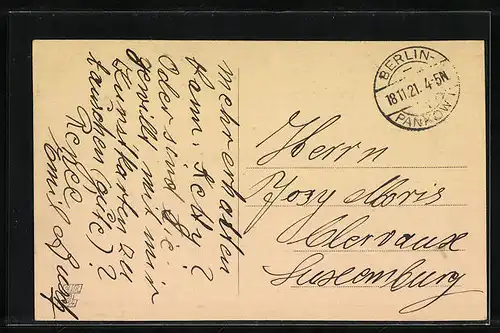 mehr erhalten
kann. Acty?
Oder sind Sie
gewillt mit mir
Kunstkarten zu
tauschen (gute)?
Emil
BERLIN-
18.11.21. 4-5N
PANKOW 1
Herrn
Josy Moris
Clervaux
Luxemburg